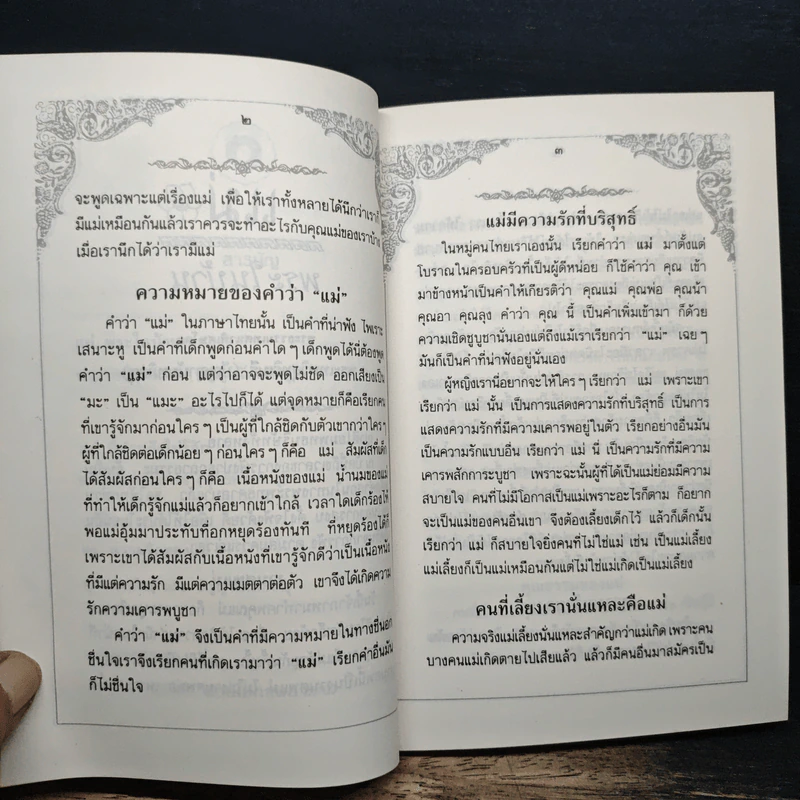 ๒
จะพูดเฉพาะแต่เรื่องแม่ เพื่อให้เราทั้งหลายได้นึกว่าเราก็
มีแม่เหมือนกันแล้วเราควรจะทำอะไรกับคุณแม่ของเราบ้าง
เมื่อเรานึกได้ว่าเรามีแม่
ความหมายของคำว่า “แม่”
คำว่า “แม่” ในภาษาไทยนั้น เป็นคำที่น่าฟัง ไพเราะ
เสนาะหู เป็นคำที่เด็กพูดก่อนคำใด ๆ เด็กพูดได้นี่ต้องพูด
คำว่า “แม่” ก่อน แต่ว่าอาจจะพูดไม่ชัด ออกเสียงเป็น
“มะ” เป็น “แมะ” อะไรไปก็ได้ แต่จุดหมายก็คือเรียกคน
ที่เขารู้จักมาก่อนใคร ๆ เป็นผู้ที่ใกล้ชิดกับตัวเขากว่าใคร ๆ
ผู้ที่ใกล้ชิดต่อเด็กน้อย ๆ ก่อนใคร ๆ ก็คือ แม่ สัมผัสที่เด็ก
ได้สัมผัสก่อนใคร ๆ ก็คือ เนื้อหนังของแม่ น้ำนมของแม่
ที่ทำให้เด็กรู้จักแม่แล้วก็อยากเข้าใกล้ เวลาใดเด็กร้องไห้
พอแม่อุ้มมาประทับที่อกหยุดร้องทันที ที่หยุดร้องได้ก็
เพราะเขาได้สัมผัสกับเนื้อหนังที่เขารู้จักดีว่าเป็นเนื้อหนัง
ที่มีแต่ความรัก มีแต่ความเมตตาต่อตัว เขาจึงได้เกิดความ
รักความเคารพบูชา
คำว่า “แม่” จึงเป็นคำที่มีความหมายในทางชื่นอก
ชื่นใจเราจึงเรียกคนที่เกิดเรามาว่า “แม่” เรียกคำอื่นมัน
ก็ไม่ชื่นใจ
๓
แม่มีความรักที่บริสุทธิ์
ในหมู่คนไทยเราเองนั้น เรียกคำว่า แม่ มาตั้งแต่
โบราณในครอบครัวที่เป็นผู้ดีหน่อย ก็ใช้คำว่า คุณ เข้า
มาข้างหน้าเป็นคำให้เกียรติว่า คุณแม่ คุณพ่อ คุณน้า
คุณอา คุณลุง คำว่า คุณ นี้ เป็นคำเพิ่มเข้ามา ก็ด้วย
ความเชิดชูบูชานั่นเองแต่ถึงแม้เราเรียกว่า “แม่” เฉย ๆ
มันก็เป็นคำที่น่าฟังอยู่นั่นเอง
ผู้หญิงเรานี่อยากจะให้ใคร ๆ เรียกว่า แม่ เพราะเขา
เรียกว่า แม่ นั้น เป็นการแสดงความรักที่บริสุทธิ์ เป็นการ
แสดงความรักที่มีความเคารพอยู่ในตัว เรียกอย่างอื่นมัน
เป็นความรักแบบอื่น เรียกว่า แม่ นี่ เป็นความรักที่มีความ
เคารพสักการะบูชา เพราะฉะนั้นผู้ที่ได้เป็นแม่ย่อมมีความ
สบายใจ คนที่ไม่มีโอกาสเป็นแม่เพราะอะไรก็ตาม ก็อยาก
จะเป็นแม่ของคนอื่นเขา จึงต้องเลี้ยงเด็กไว้ แล้วก็เด็กนั้น
เรียกว่า แม่ ก็สบายใจยิ่งคนที่ไม่ใช่แม่ เช่น เป็นแม่เลี้ยง
แม่เลี้ยงก็เป็นแม่เหมือนกันแต่ไม่ใช่แม่เกิดเป็นแม่เลี้ยง
คนที่เลี้ยงเรานั่นแหละคือแม่
ความจริงแม่เลี้ยงนั่นแหละสำคัญกว่าแม่เกิด เพราะคน
บางคนแม่เกิดตายไปเสียแล้ว แล้วก็มีคนอื่นมาสมัครเป็น